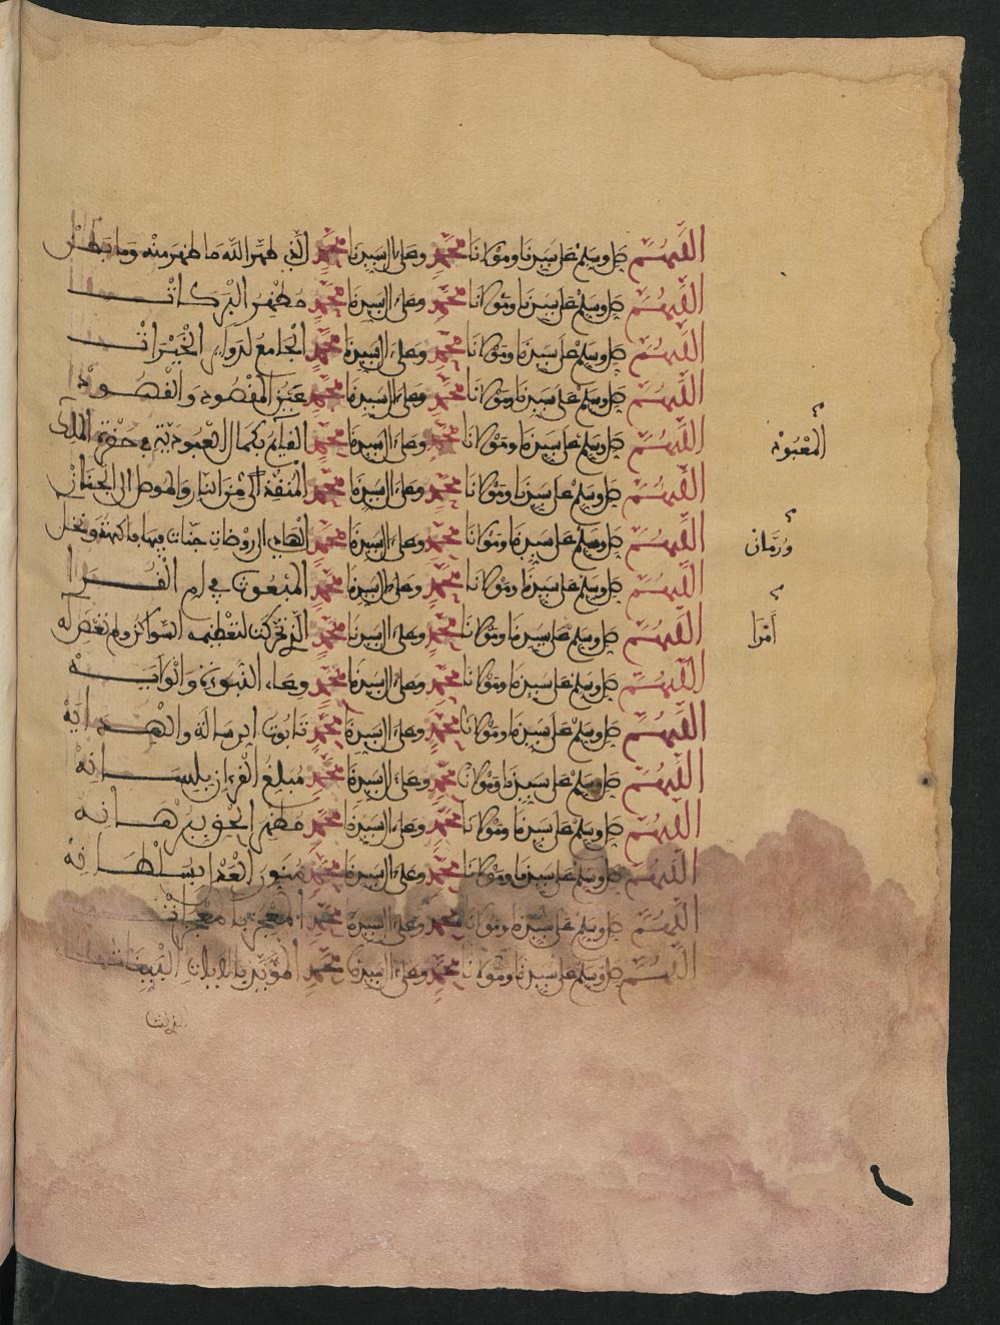 اللهم صل وسلم على سيدنا ومولانا محمد وعلى آل سيدنا محمد الذي طهر الله ما ظهر منه وما بطن
اللهم صل وسلم على سيدنا ومولانا محمد وعلى آل سيدنا محمد مظهر البركات
اللهم صل وسلم على سيدنا ومولانا محمد وعلى آل سيدنا محمد الجامع لدواير الخيرات
اللهم صل وسلم على سيدنا ومولانا محمد وعلى آل سيدنا محمد عين المقصود والقصود
اللهم صل وسلم على سيدنا ومولانا محمد وعلى آل سيدنا محمد القايم بكمال العبودية في حضرة الملك
المعبود
اللهم صل وسلم على سيدنا ومولانا محمد وعلى آل سيدنا محمد المنقذ من النار والموصل إلى الجنان
اللهم صل وسلم على سيدنا ومولانا محمد وعلى آل سيدنا محمد الهادي إلى روضات جنات فيها فاكهة ونخل
ورمان
اللهم صل وسلم على سيدنا ومولانا محمد وعلى آل سيدنا محمد المبعوث في أم القرا
اللهم صل وسلم على سيدنا ومولانا محمد وعلى آل سيدنا محمد الذي تحركت لتعظيمه السواكن ولم تعص له
أمرا
اللهم صل وسلم على سيدنا ومولانا محمد وعلى آل سيدنا محمد وعاء النبوة
اللهم صل وسلم على سيدنا ومولانا محمد وعلى آل سيدنا محمد تابوت الرسالة والهداية
اللهم صل وسلم على سيدنا ومولانا محمد وعلى آل سيدنا محمد مبلغ القرءان بلسانه
اللهم صل وسلم على سيدنا ومولانا محمد وعلى آل سيدنا محمد مظهر الحق ببرهانه
اللهم صل وسلم على سيدنا ومولانا محمد وعلى آل سيدنا محمد منور العدل بسلطانه
اللهم صل وسلم على سيدنا ومولانا محمد وعلى آل سيدنا محمد المعجز بالمعجزات
اللهم صل وسلم على سيدنا ومولانا محمد وعلى آل سيدنا محمد المؤيد بالآيات البينات